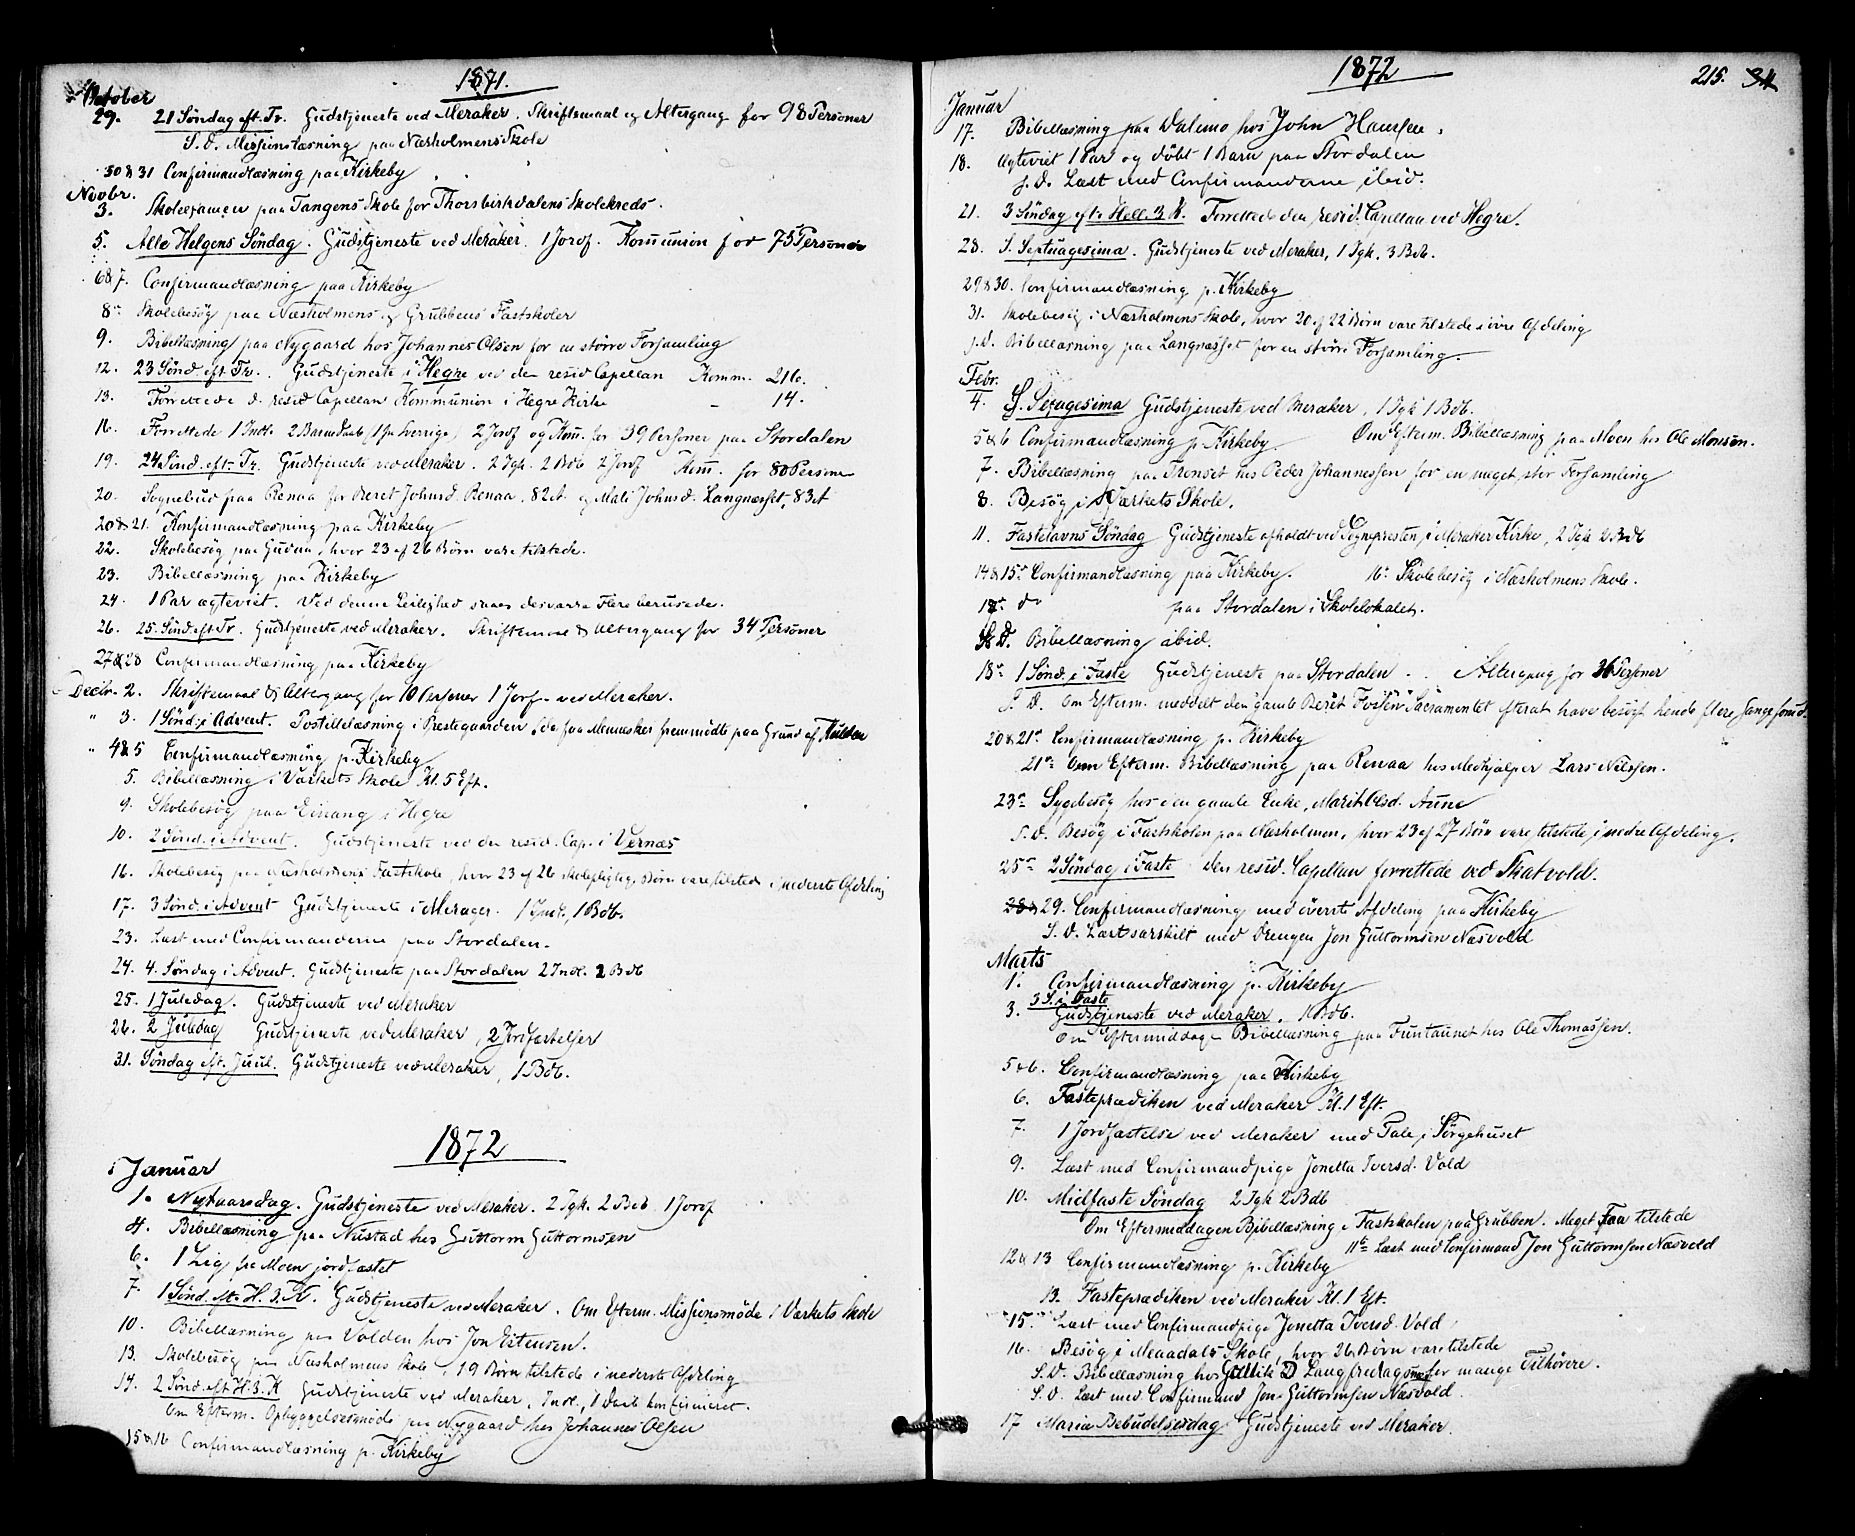 1871.
October
29. 21 Søndag eft. Tr. Gudstjeneste ved Meraker. Skriftemaal og Altergang for 98 Personer
S. D. Missionslæsning paa Næsholmens Skole
30 & 31 Confirmandlæsning paa Kirkeby
Novbr.
3. Skoleexamen paa Tangens Skole for Thorsbirkdalens Skolekreds.
5. Alle Helgens Søndag. Gudstjeneste ved Meraker. 1 Jordf. Komunion for 75 Personer
6 & 7. Confirmandlæsning paa Kirkeby
8 Skolebesøg paa Næsholmens og Grubbens Fastskoler
9. Bibellæsning paa Nygaard hos Johannes Olsen for en større Forsamling
12. 23 Sønd. eft. Tr. Gudstjeneste i Hegre ved den resid Capellan Komm. 216.
13. Forrettede d. resid Capellan Kommunion i Hegre Kirke – 14.
16. Forrettede 1 Indl. 2 Barnedaab (1 fra Sverrige) 2 Jordf og Kom. for 39 Personer paa Stordalen
19. 24 Sønd. eft. Tr. Gudstjeneste ved Meraker. 2 Igk. 2 Bdb 2 Jordf Kom. for 80 Personer
20. Sognebud paa Renaa for Beret Johnsd. Renaa, 82 A. og Mali Johnsd. Langnæsset, 83 A
20 & 21. Konfirmandlæsning paa Kirkeby
22. Skolebesøg paa Gudaa, hvor 23 af 26 Børn vare tilstede.
23. Bibellæsning paa Kirkeby
24. 1 Par ægteviet. Ved denne Leilighed saaes desværre Flere berusede.
26. 25. Sønd. eft Tr. Gudstjeneste ved Meraker. Skriftemaal & Altergang for 34 Personer
27 & 28 Confirmandlæsning paa Kirkeby
Decbr. 2. Skriftemaal & Altergang for 10 Personer 1 Jorf. ved Meraker.
" 3. 1 Sønd. i Advent. Postillelæsning i Prestegaarden, da faa Mennesker fremmødte paa Grund af Kulden
" 4 & 5 Confirmandlæsning p. Kirkeby
5. Bibellæsning i Værkets Skole Kl. 5 Eft.
9. Skolebesøg paa Einang i Hegre
10. 2 Sønd. i Advent. Gudstjeneste ved den resid. Cap. i Vernæs
16. Skolebesøg paa Næsholmens Fastskole, hvor 23 af 26 skolepligtige Børn vare tilstede i nederste Afdeling
17. 3 Sønd. i Advent Gudstjeneste i Merager. 1 Indl., 1 Bdb.
23. Læst med Confirmanderne paa Stordalen.
24. 4. Søndag i Advent. Gudstjeneste paa Stordalen 2 Indl. 2 Bdb
25. 1 Juledag. Gudstjeneste ved Meraker
26. 2 Juledag Gudstjeneste ved Meraker, 2 Jordfæstelser
31. Søndag eft. Juul. Gudstjeneste ved Meraker, 1 Bdb.
1872
Januar
1. Nytaarsdag. Gudstjeneste ved Meraker. 2 Igk. 2 Bdb 1 Jordf
4. Bibellæsning paa Nustad hos Guttorm Guttormsen
6. 1 Lig fra Moen jordfæstet
7. 1 Sønd. eft. H. 3. K. Gudstjeneste ved Meraker. Om Efterm. Missionsmøde i Værkets Skole
10. Bibellæsning paa Volden hos Jon Estensen.
13. Skolebesøg paa Næsholmens Skole, 19 Børn tilstede i nederst Afdeling
14. 2 Sønd. eft H. 3. K Gudstjeneste ved Meraker, Indl., 1 Daab konfirmeret.
Om Efterm. Opbyggelsesmøde paa Nygaard hos Johannes Olsen
15 & 16 Confirmandlæsning p. Kirkeby
1872
215. 34
Januar
17. Bibellæsning paa Dalemo hos John Haursen.
18. Ægteviet 1 Par og døbt 1 Barn paa Stordalen
s. D. Læst med Confirmanderne ibid.
21. 3 Søndag eft. Hell. 3 K. Forrettede den resid. Capellan ved Hegre.
28. S. Septuagesima. Gudstjeneste ved Meraker, 1 Igk. 3 Bdb.
29 & 30. Confirmandlæsning p. Kirkeby
31. Skolebesøg i Næsholmens Skole, hvor 20 af 22 Børn vare tilstede i øvre Afdeling
s. d. Bibellæsning paa Langnæsset for en større Forsamling.
Febr.
4. S. Sexagesima Gudstjeneste ved Meraker, 1 Igk 1 Bdb.
Om Efterm. Bibellæsning paa Moen hos Ole Monsen.
5 & 6 Confirmandlæsning p. Kirkeby
7. Bibellæsning paa Tronset hos Peder Johannessen for en meget stor Forsamling
8. Besøg i Værkets Skole.
11. Fastelavns Søndag Gudstjeneste afholdt ved Sognepresten, i Meraker Kirke, 2 Igk 2 Bdb
14 & 15 Confirmandlæsning paa Kirkeby. 16 Skolebesøg i Næsholmens Skole.
17 do paa Stordalen i Skolelokalet.
S. D. Bibellæsning ibid.
18 1 Sønd. i Faste Gudstjeneste paa Stordalen.. Altergang for 36 Personer
S. D. Om Efterm. meddelt den gamle Beret Sacramentet efterat have besøgt hende flere Gange forud.
20 & 21 Confirmandlæsning p. Kirkeby
21 Om Efterm. Bibellæsning paa Renaa hos Medhjælper Lars Nilssen.
23 Sygebesøg hos den gamle Enke, Marit Olsd. Aune
S. D. Besøg i Fastskolen paa Næsholmen, hvor 23 af 27 Børn vare tilstede, i nedre Afdeling.
25 2 Søndag i Faste Den resid. Capellan forrettede ved Skatvold.
28 & 29. Confirmandlæsning med øverste Afdeling paa Kirkeby
S. D. Læst særskilt med Drengen Jon Guttormsen Næsvold
Marts
1. Confirmandlæsning p. Kirkeby
3 S. i Faste
3. Gudstjeneste ved Meraker. 1 Bdb.
Om Eftermiddagen Bibellæsning paa Funtaunet hos Ole Thomassen.
5 & 6. Confirmandlæsning paa Kirkeby
6. Fasteprædiken ved Meraker Kl. 1 Eft.
7. 1 Jordfæstelse ved Meraker med Tale i Sørgehuset
9. Læst med Confirmandpige Jonetta Iversd. Vold
10. Midfaste Søndag 2 Igk 2 Bdb
Om Eftermiddagen Bibellæsning i Fastskolen paa Grubben. Meget Faa tilstede
11te Læst med Confirmand Jon Guttormsen Næsvold
12 & 13 Confirmandlæsning p. Kirkeby
13. Fasteprædiken ved Meraker Kl. 1 Eft.
15. Læst med Confirmandpige Jonetta Iversd. Vold
16. Besøg i Meaadals Skole, hvor 26 Børn vare tilstede
S. D. Bibellæsning hos for mange Tilhørere.
S. D. Læst med Confirmand Jon Guttormsen Næsvold.
17 Mariæ Bebudelsesdag Gudstjeneste ved Meraker.